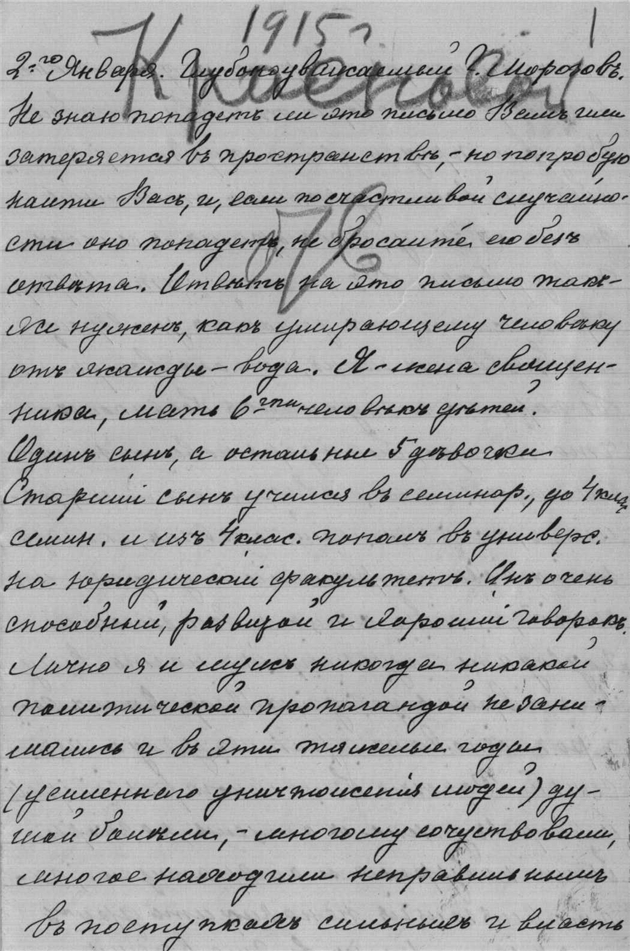 1915 г
Красновой
76
2-го Января. Глубокоуважаемый Г. Морозовъ.
Не знаю попадетъ ли это письмо Вамъ или
затеряется въ пространствѣ, – но попробую
найти Васъ, и, если по счастливой случайно-
сти оно попадетъ, не бросайте его безъ
отвѣта. Отвѣтъ на это письмо такъ-
же нуженъ, какъ умирающему человѣку
отъ жажды – вода. Я – жена священ-
ника, мать 6ти человѣкъ дѣтей.
Одинъ сынъ, а остальные 5 дѣвочки
Старший сынъ учился въ семинар., до 4 клас.
семин. и изъ 4 клас. попалъ въ универс.
на юридическій факультетъ. Онъ очень
способный, развитой и хороший говорокъ.
Лично я и мужъ никогда никакой
политической пропагандой не зани-
мались и въ эти тяжелые годы
(усиленного уничтожения людей) ду-
шой болѣли, – многому сочуствовали,
многое находили неправильнымъ
въ поступкахъ сильныхъ и власть